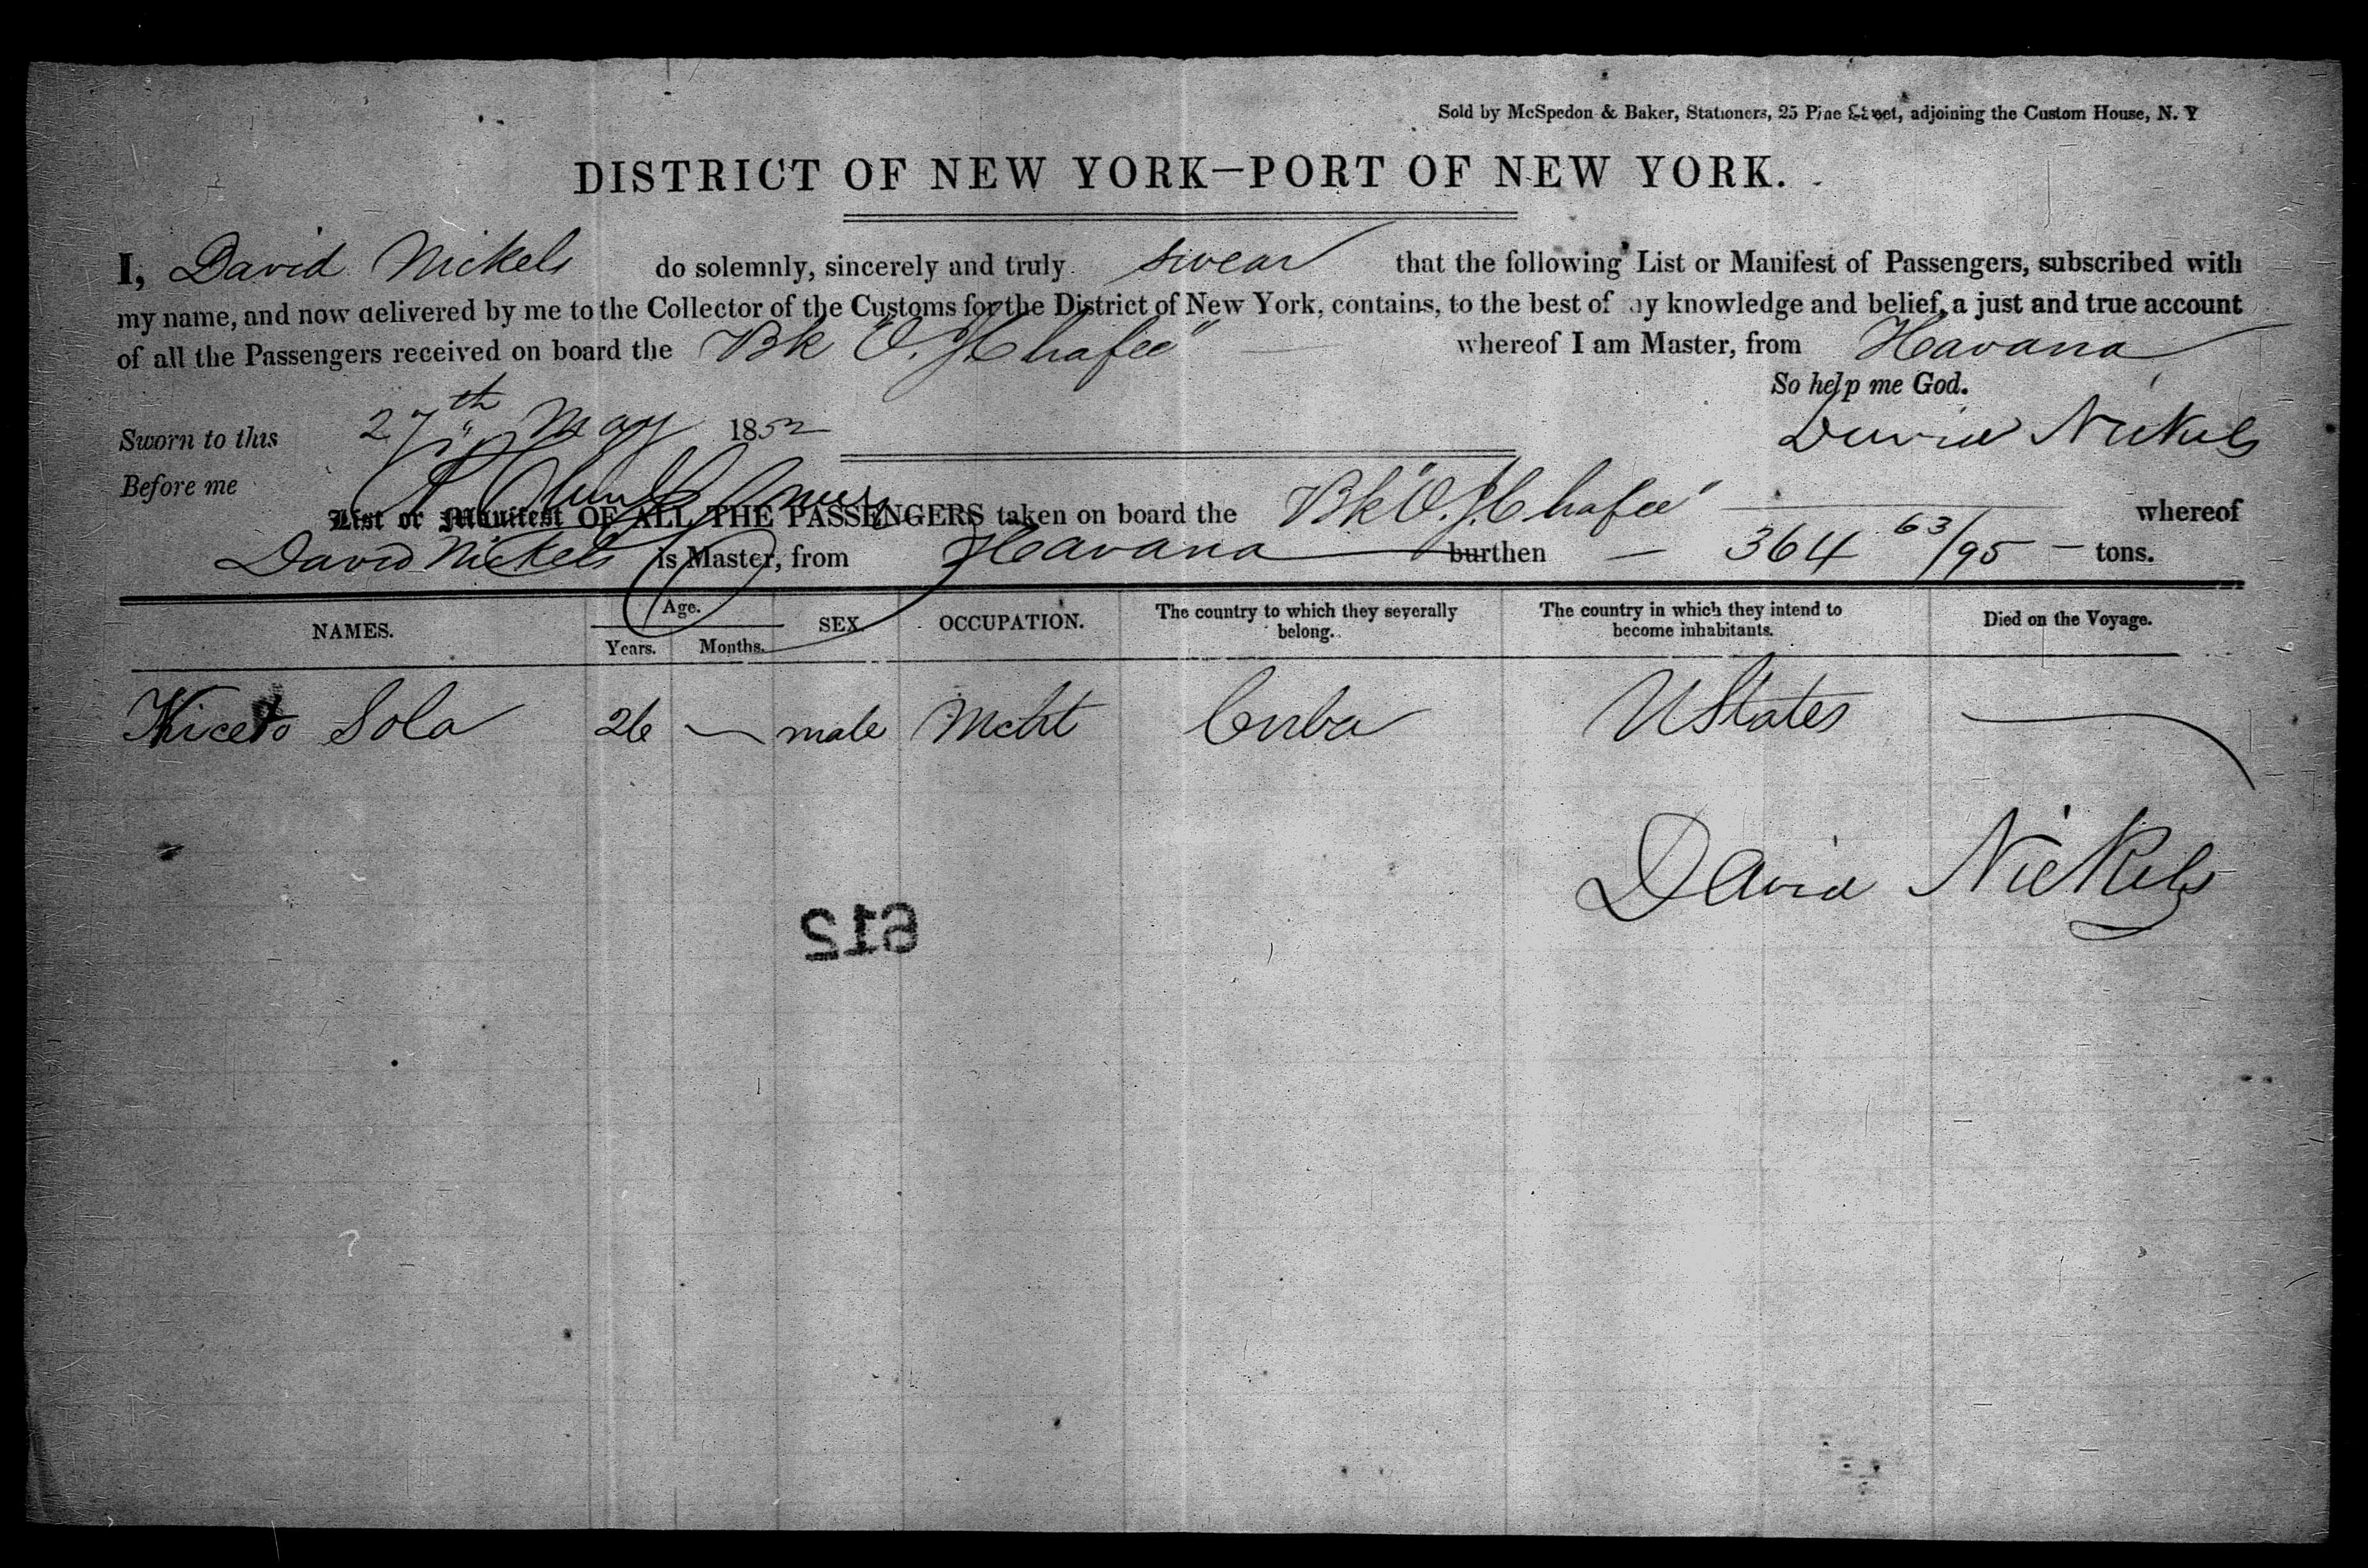 Sold by McSpedon & Baker, Stationers, 25 Pine Street, adjoining the Custom House, N. Y
DISTRICT OF NEW YORK—PORT OF NEW YORK.
I, David Nickels do solemnly, sincerely and truly swear that the following List or Manifest of Passengers, subscribed with
my name, and now delivered by me to the Collector of the Customs for the District of New York, contains, to the best of my knowledge and belief, a just and true account
of all the Passengers received on board the Bk "O. J. Chafee" whereof I am Master, from Havana
So help me God.
Sworn to this 27th May 1852 David Nickels
Before me
List or Manifest OF ALL THE PASSENGERS taken on board the Bk "O. J. Chafee" whereof
David Nickels is Master, from Havana burthen — 364 63/95 — tons.
NAMES. Age. Years. Months. SEX. OCCUPATION. The country to which they severally belong. The country in which they intend to become inhabitants. Died on the Voyage.
Niceto Sola 26 — male Mcht Cuba UStates —
David Nickels
612